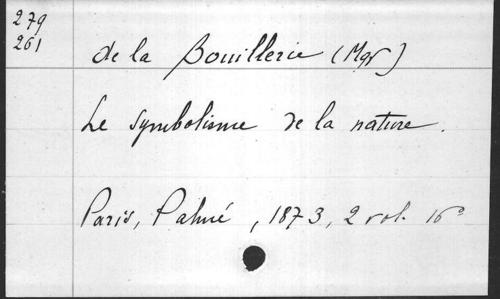 279
261
de la Bouillerie (Mgr)
Le symbolisme de la nature.
Paris, Palmé, 1873, 2 vol. 16°